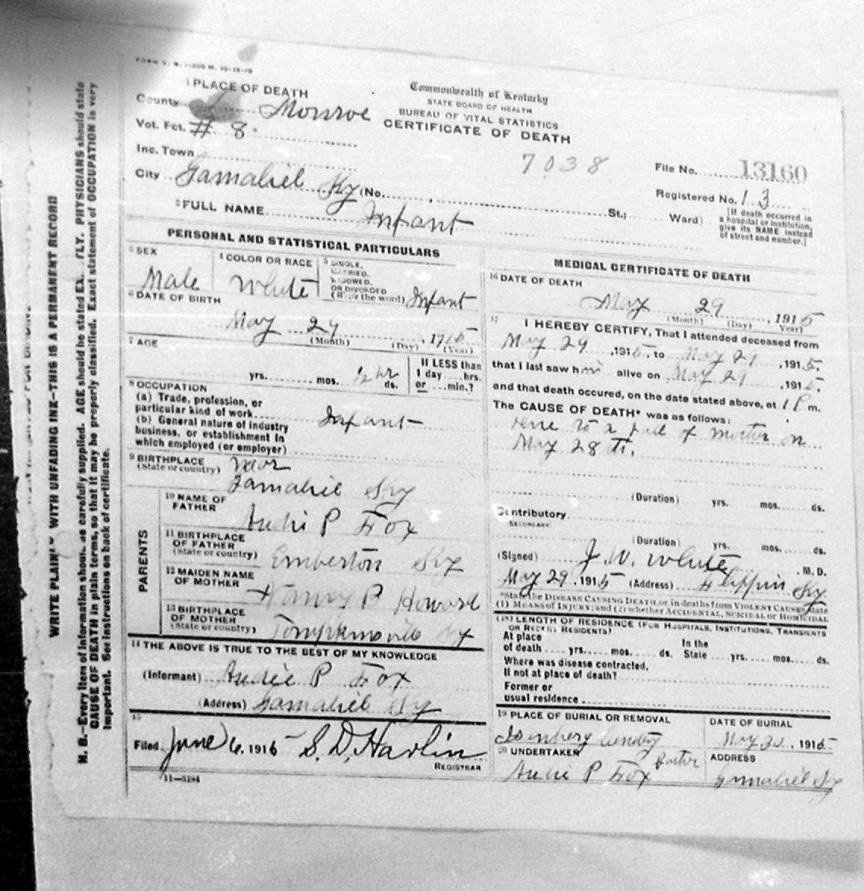 FORM V. S. 1-200 M. 10-15-10
1 PLACE OF DEATH
Commonwealth of Kentucky
STATE BOARD OF HEALTH
BUREAU OF VITAL STATISTICS
CERTIFICATE OF DEATH
County Monroe
Vot. Pct. # 8.
Inc. Town
7038
File No. 13160
City Gamaliel Ky (No. St.; Ward)
Registered No. 13
[If death occurred in a hospital or institution, give its NAME instead of street and number.]
2 FULL NAME Infant
PERSONAL AND STATISTICAL PARTICULARS
3 SEX
Male
4 COLOR OR RACE
White
5 SINGLE, MARRIED, WIDOWED, OR DIVORCED (Write the word) Infant
6 DATE OF BIRTH
May 29, 1915
(Month) (Day) (Year)
7 AGE
yrs. mos. ds.
If LESS than 1 day hrs. or min.?
8 OCCUPATION
(a) Trade, profession, or particular kind of work
Infant
(b) General nature of industry business, or establishment in which employed (or employer)
9 BIRTHPLACE
(State or country)
near
Gamaliel Ky
PARENTS
10 NAME OF FATHER
Audie P Fox
11 BIRTHPLACE OF FATHER
(State or country)
Emberton Ky
12 MAIDEN NAME OF MOTHER
Nancy B Howard
13 BIRTHPLACE OF MOTHER
(State or country)
Tompkinsville Ky
14 THE ABOVE IS TRUE TO THE BEST OF MY KNOWLEDGE
(Informant) Audie P Fox
(Address) Gamaliel Ky
15
Filed June 6, 1915 S. D. Harlin
REGISTRAR
11-3184
MEDICAL CERTIFICATE OF DEATH
16 DATE OF DEATH
May 29, 1915
(Month) (Day) Year)
17 I HEREBY CERTIFY, That I attended deceased from
May 29, 1915, to May 29, 1915,
that I last saw him alive on May 29, 1915,
and that death occured, on the date stated above, at 1 P m.
The CAUSE OF DEATH* was as follows:
to a fall of mother on
May 28 th.
(Duration) yrs. mos. ds.
Contributory
SECONDARY
(Duration) yrs. mos. ds.
(Signed) J. W. White, M. D.
May 29, 1915 (Address) Flippin Ky
*State the DISEASE CAUSING DEATH, or in deaths from VIOLENT CAUSES, state
(1) MEANS OF INJURY; and (2) whether ACCIDENTAL, SUICIDAL OR HOMICIDAL
(18) LENGTH OF RESIDENCE (FOR HOSPITALS, INSTITUTIONS, TRANSIENTS OR RECENT RESIDENTS)
At place of death yrs. mos. ds. In the State yrs. mos. ds.
Where was disease contracted,
If not at place of death?
Former or
usual residence
19 PLACE OF BURIAL OR REMOVAL
DATE OF BURIAL
May 30, 1915
20 UNDERTAKER
Audie P Fox
ADDRESS
Gamaliel Ky
WRITE PLAINLY WITH UNFADING INK—THIS IS A PERMANENT RECORD
N. B.—Every item of information should be carefully supplied. AGE should be stated EX TLY. PHYSICIANS should state
CAUSE OF DEATH in plain terms, so that it may be properly classified. Exact statement of OCCUPATION is very
important. See instructions on back of certificate.